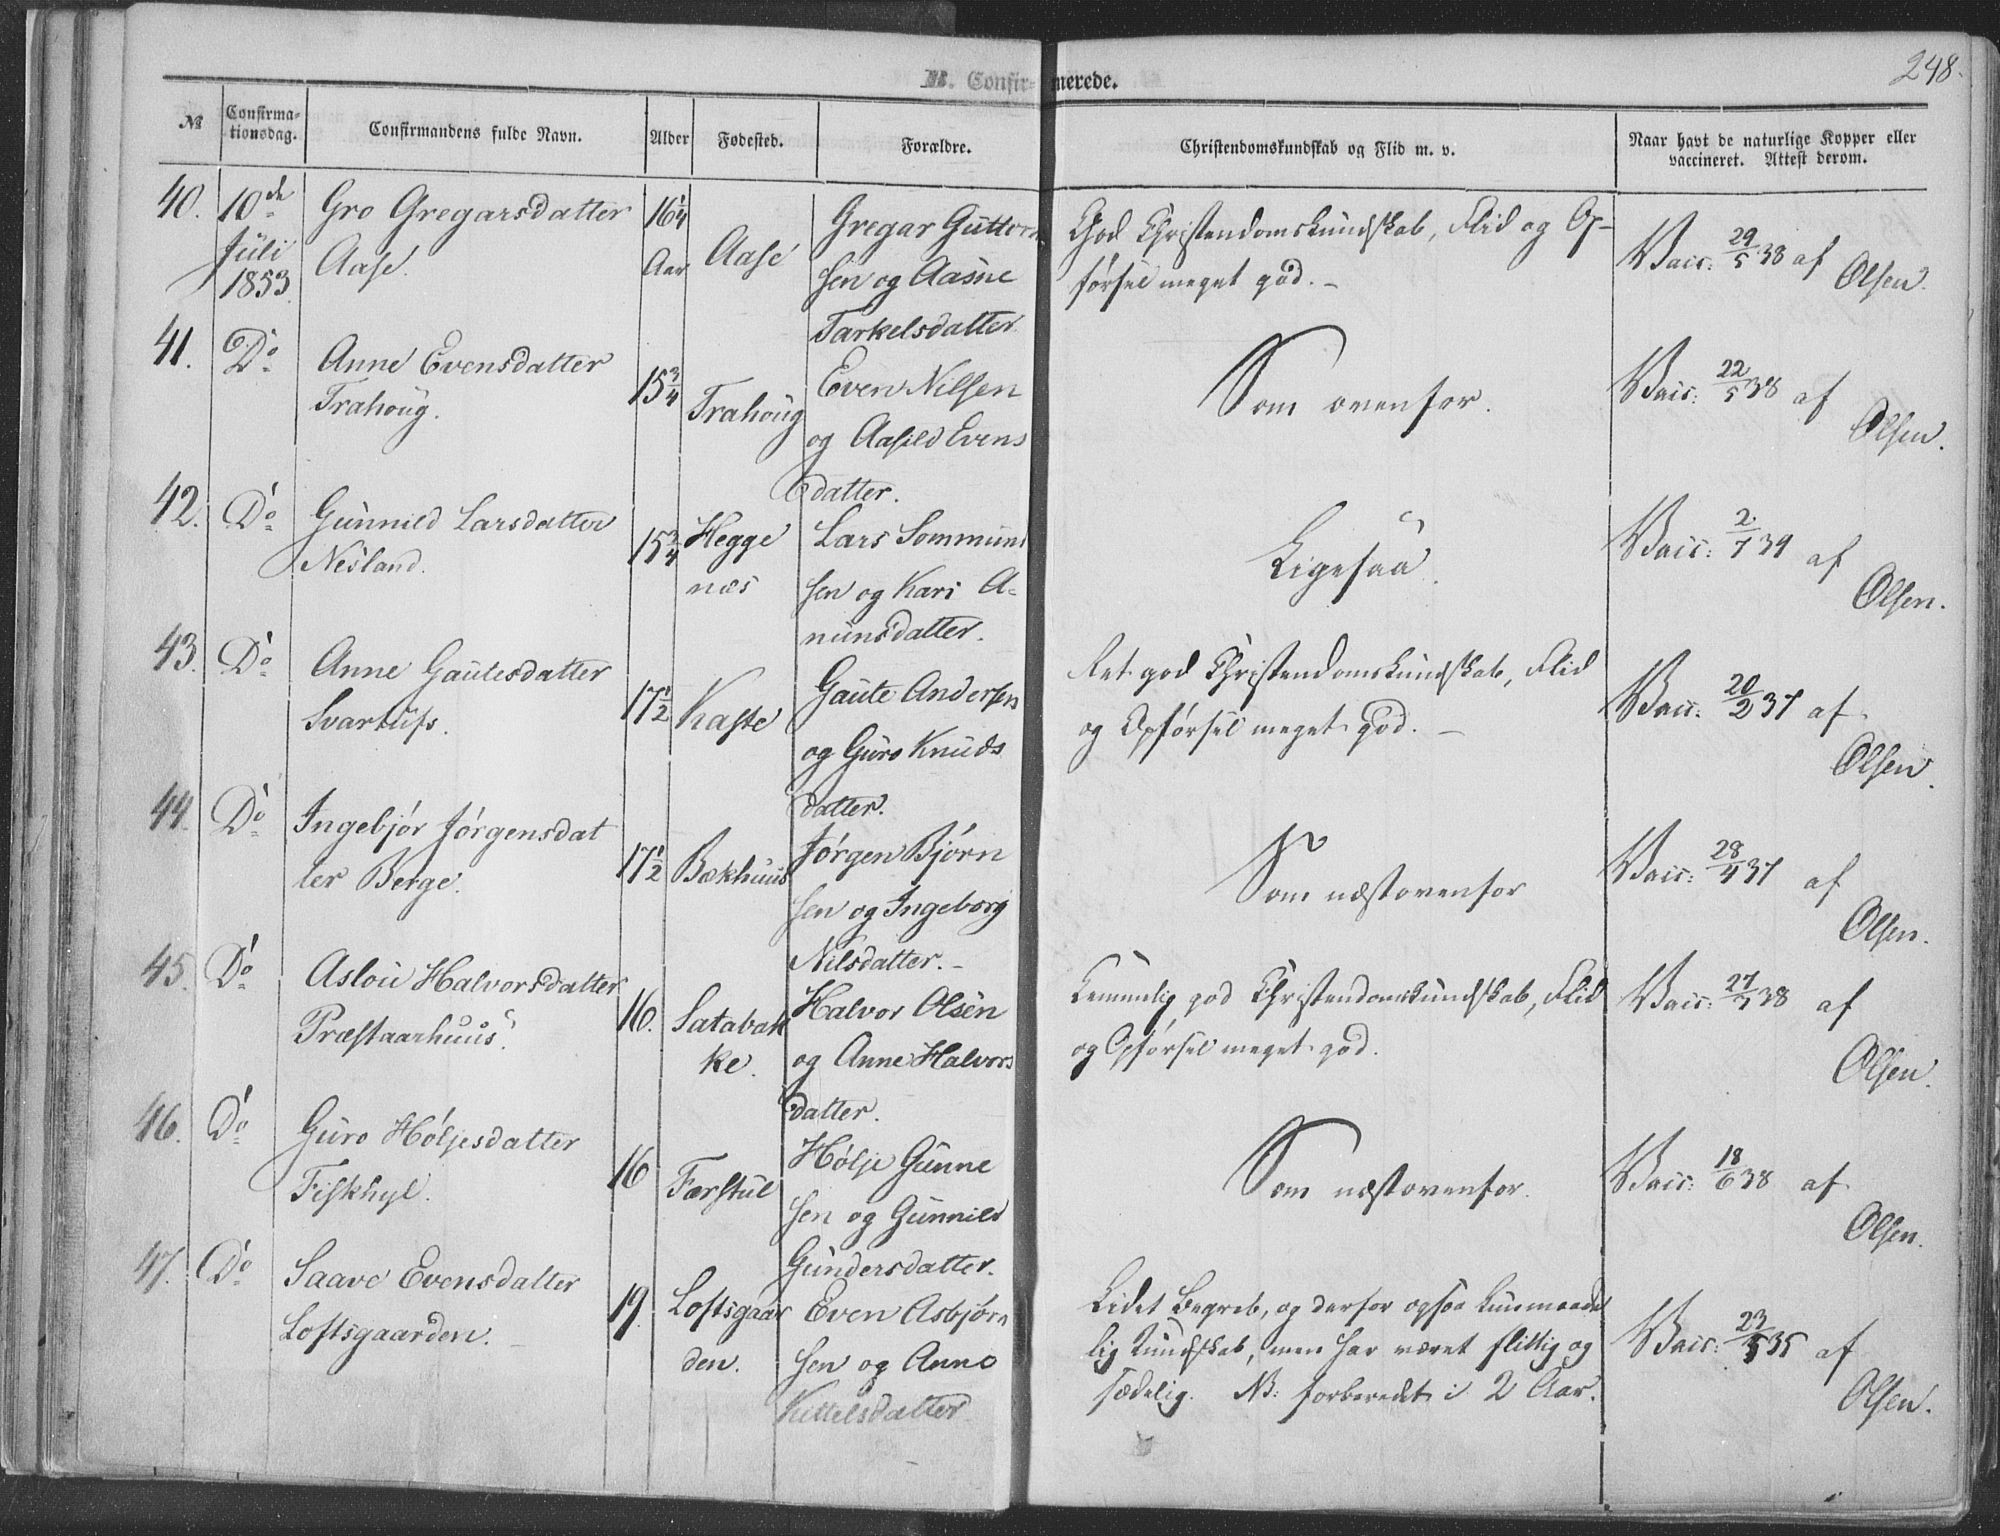 248.
B. Confirmerede.
№ Confirmationsdag. Confirmandens fulde Navn. Alder Fødested. Forældre. Christendomskundskab og Flid m. v. Naar havt de naturlige Kopper eller vaccineret. Attest derom.
40. 10de Gro Gregarsdatter 16¼ Gregar Guttorm
Juli Aase. Aar Aase sen og Aasne
1853. Tarkelsdatter
God Christendomskundskab, Flid og Op-
førsel meget god. -
Vacc: 29/5 38 af
Olsen.
41. Do Anne Evensdatter 15¾ Trahoug Even Nilsen
Trahoug. og Aasild Evens
datter.
Som ovenfor.
Vacc: 22/5 38 af
Olsen.
42. Do Gunnild Larsdatter 15¾ Hegge Lars Sommund
Nesland. næs sen og Kari A-
nunsdatter.
Ligesaa.
Vacc: 2/7 39 af
Olsen.
43. Do Anne Gautesdatter 17½ Kaste Gaute Andersen
Svartufs. og Guro Knuds
datter.
Ret god Christendomskundskab, Flid
og Opførsel meget god. -
Vacc: 20/2 37 af
Olsen.
44. Do Ingebjør Jørgensdat 17½ Bækhuus Jørgen Bjørn
ter Berge. sen og Ingeborg
Nilsdatter. -
Som næstovenfor
Vacc: 28/4 37 af
Olsen.
45. Do Aslou Halvorsdatter 16. Satabak Halvor Olsen
Præstaarhuus. ke. og Anne Halvors
datter.
Temmelig god Christendomskundskab, Flid
og Opførsel meget god.
Vacc: 38 af
Olsen.
46. Do Guro Høljesdatter 16 Færstul Hølje Gunne
Fiskhyl. sen og Gunnild
Gundersdatter.
Som næstovenfor.
Vacc: 18/6 38 af
Olsen.
47. Do Saave Evensdatter 19. Loftsgaar Even Asbjørn
Loftsgaarden. den. sen og Anne
Kittelsdatter
Lidet Begreb, og derfor ogsaa kun maade
lig Kundskab, men har været flittig og
sædelig. NB: forberedt i 2 Aar.
Vacc: 23/5 35 af
Olsen.